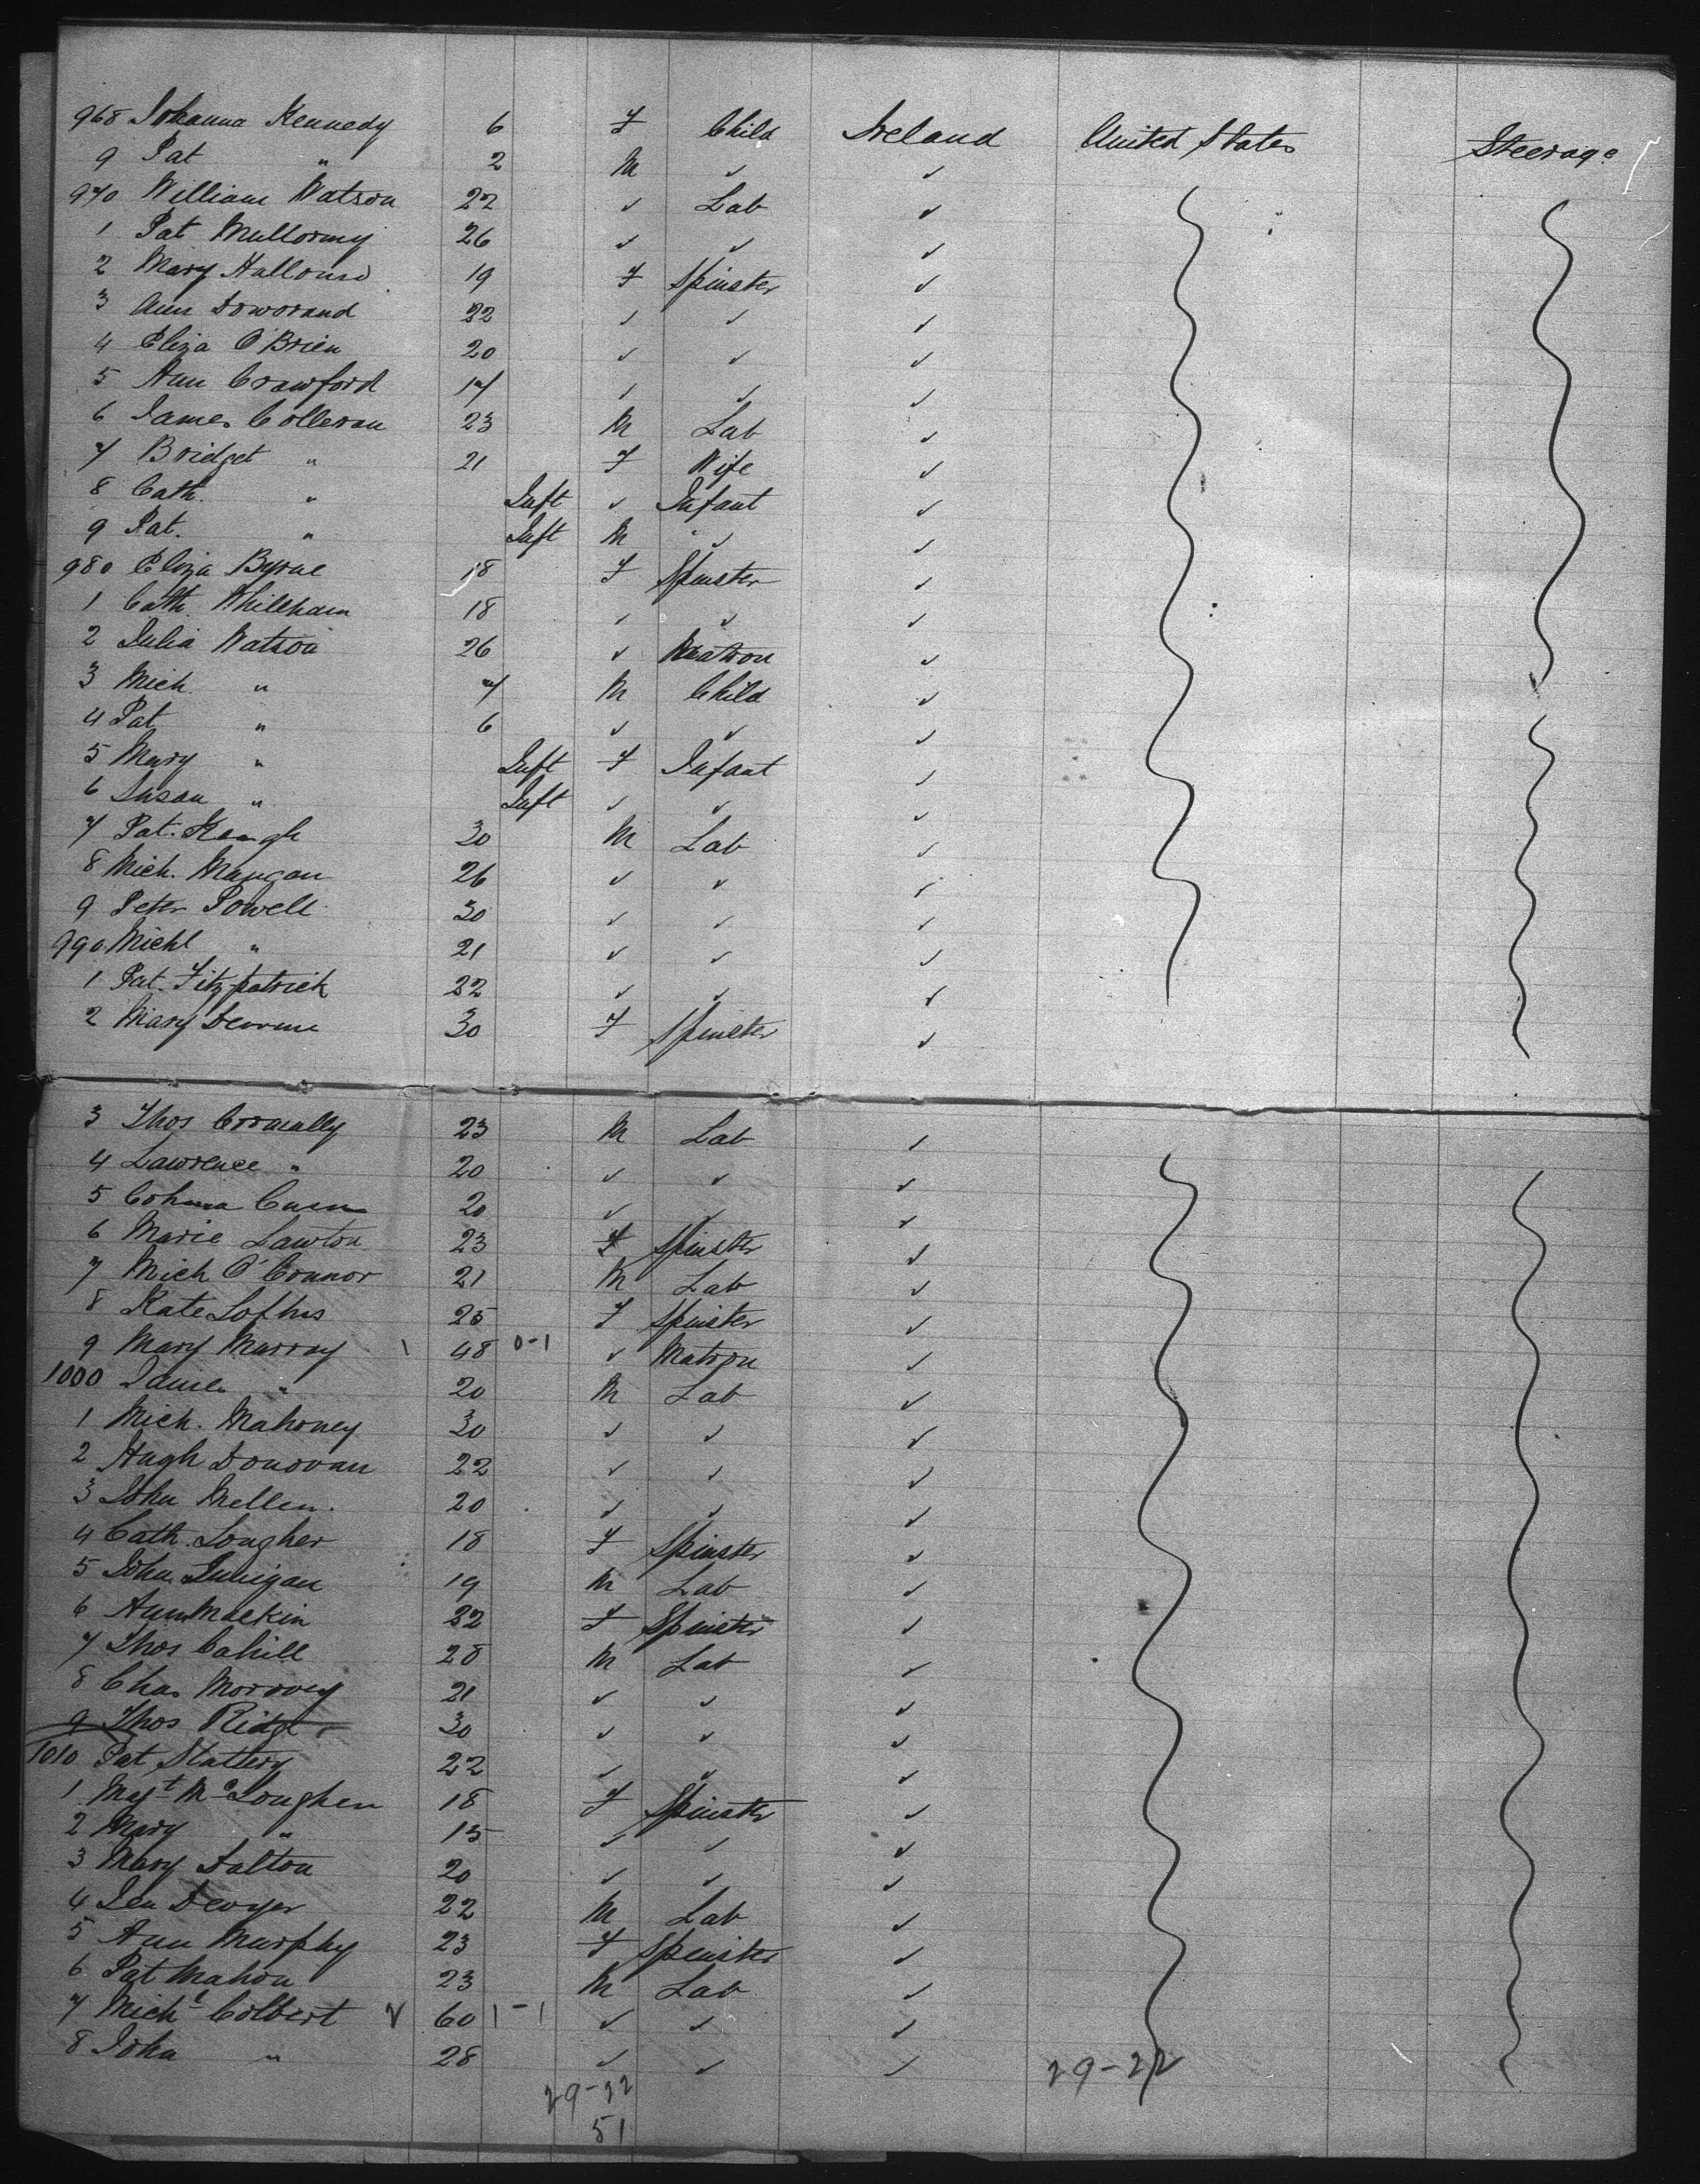 968 Johanna Kennedy 6 F Child Ireland United States Steerage
9 Pat " 2 M ✓ ✓
970 William Watson 22 ✓ Lab ✓
1 Pat 26 ✓ ✓ ✓
2 Mary 19 F Spinster ✓
3 Ann 22 ✓ ✓ ✓
4 Eliza O'Brien 20 ✓ ✓ ✓
5 Ann Crawford 17 ✓ ✓ ✓
6 James Colleran 23 M Lab ✓
7 Bridget " 21 F Wife ✓
8 Cath. " Inft ✓ Infant ✓
9 Pat. " Inft M ✓ ✓
980 Eliza Byrne 18 F Spinster ✓
1 Cath. 18 ✓ ✓ ✓
2 Julia Watson 26 ✓ Matron ✓
3 Mich. " 7 M Child ✓
4 Pat " 6 ✓ ✓ ✓
5 Mary " Inft F Infant ✓
6 Susan " Inft ✓ ✓ ✓
7 Pat. Keough 30 M Lab ✓
8 Mich. Mangan 26 ✓ ✓ ✓
9 Peter Powell 30 ✓ ✓ ✓
990 Michl " 21 ✓ ✓ ✓
1 Pat. Fitzpatrick 22 ✓ ✓ ✓
2 Mary 30 F Spinster ✓
3 Thos 23 M Lab ✓
4 Lawrence " 20 ✓ ✓ ✓
5 20 ✓ ✓ ✓
6 Marie Lawton 23 F Spinster ✓
7 Mich O'Connor 21 M Lab ✓
8 Kate Loftus 25 F Spinster ✓
9 Mary Murray 48 0-1 ✓ Matron ✓
1000 James " 20 M Lab ✓
1 Mich. Mahoney 30 ✓ ✓ ✓
2 Hugh Donovan 22 ✓ ✓ ✓
3 John Mellen. 20 ✓ ✓ ✓
4 Cath. Lougher 18 F Spinster ✓
5 John 19 M Lab ✓
6 Ann Mackin 22 F Spinster ✓
7 Thos Cahill 28 M Lab ✓
8 Chas 21 ✓ ✓ ✓
9 Thos Ridge 30 ✓ ✓ ✓
1010 Pat Slattery 22 ✓ ✓ ✓
1 Mgt McLoughen 18 F Spinster ✓
2 Mary " 15 ✓ ✓ ✓
3 Mary Dalton 20 ✓ ✓ ✓
4 22 M Lab ✓
5 Ann Murphy 23 F Spinster ✓
6 Pat Mahon 23 M Lab ✓
7 Michl Colbert ✓ 60 1-1 ✓ ✓ ✓
8 John " 28 ✓ ✓ ✓ 29-22
29-22
51